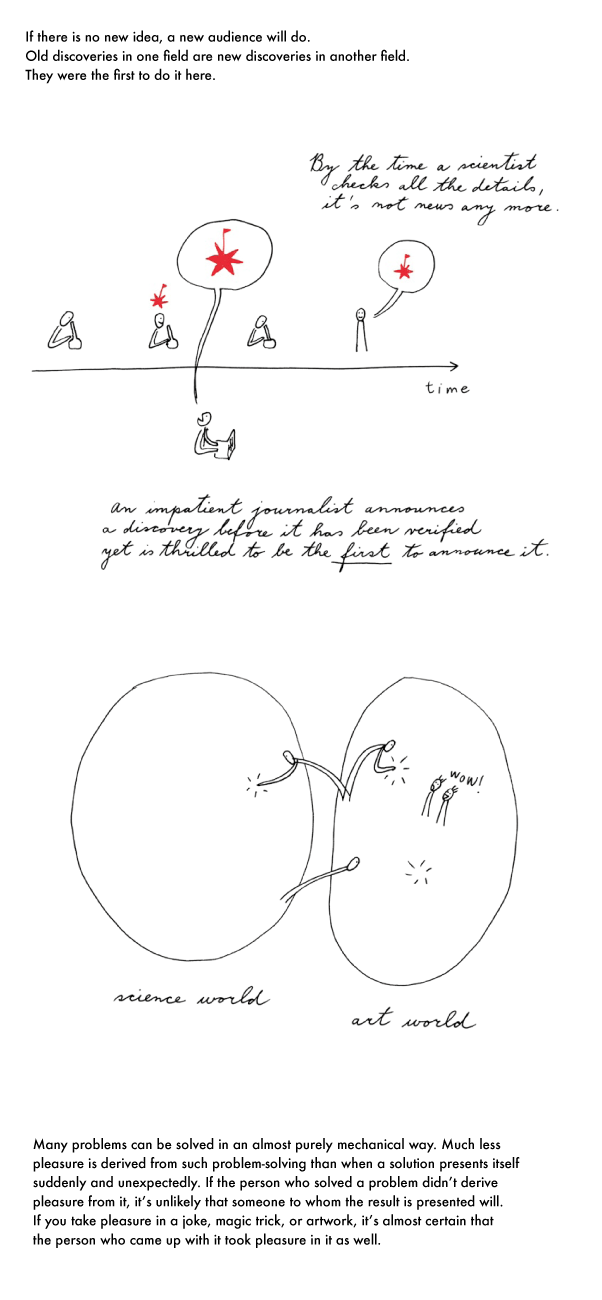 If there is no new idea, a new audience will do.
Old discoveries in one field are new discoveries in another field.
They were the first to do it here.
By the time a scientist
checks all the details,
it's not news any more.
time
an impatient journalist announces
a discovery before it has been verified
yet is thrilled to be the first to announce it.
WOW!
science world
art world
Many problems can be solved in an almost purely mechanical way. Much less
pleasure is derived from such problem-solving than when a solution presents itself
suddenly and unexpectedly. If the person who solved a problem didn't derive
pleasure from it, it's unlikely that someone to whom the result is presented will.
If you take pleasure in a joke, magic trick, or artwork, it's almost certain that
the person who came up with it took pleasure in it as well.